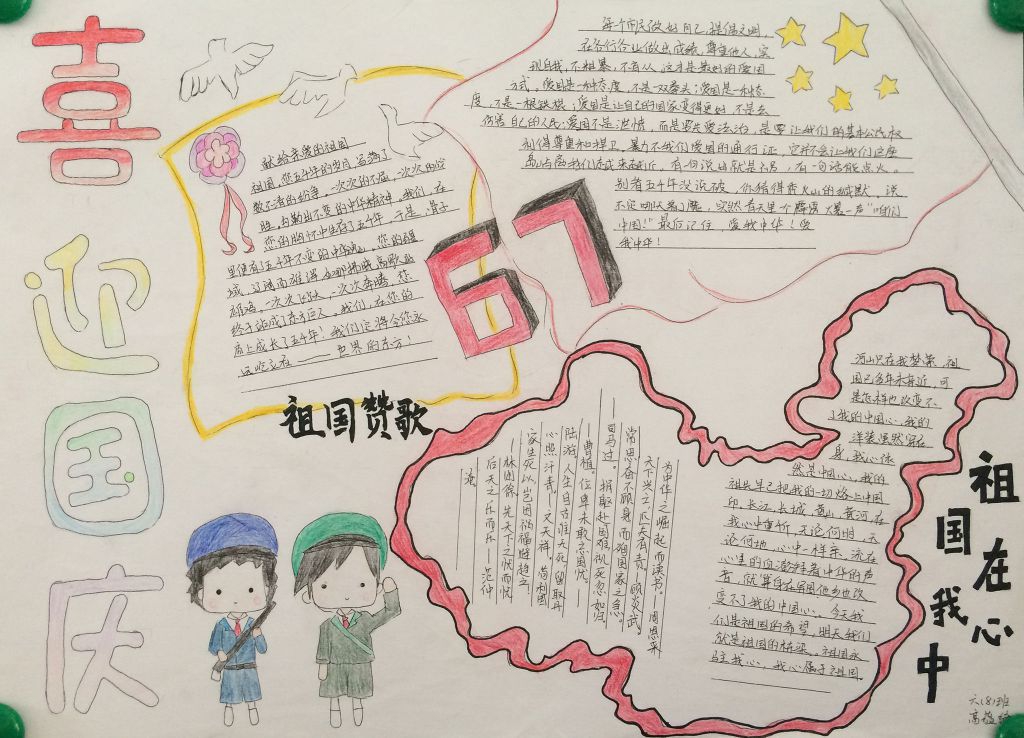 喜迎国庆
献给亲爱的祖国
祖国,您五千年的岁月,写满了
数不清的纷争。一次次的不屈,一次次的
胜,勾勒出不变的中华精神。我们,在
您的胸怀中生存了五千年,于是,骨子
里便有了五千年不变的中华魂。您的疆
域,辽阔而雄浑,
雄鸡。一次次飞跃,一次次奔腾,您
终于站成了东方巨人。我们,在您的
肩上成长了五千年!我们定将令您永
远屹立在——世界的东方!
祖国赞歌
67
每个市民做好自己,提倡文明,
在各行各业做出成绩,尊重他人,实
现自我,不粗暴,不盲从,这才是最好的爱国
方式。爱国是一种态度,不是一双拳头;爱国是一种态
度,不是一根铁棍;爱国是让自己的国家变得更好,不是去
伤害自己的人民;爱国不是泄愤,而是要关爱法治,是要让我们的基本公民权
利得尊重和捍卫。暴力不我们爱国的通行证,它并不会让我们这座
岛屿离我们越来越近。有一句说出就是祸,有一句话能点火。
别看五千年没说破,你猜得透火山的缄默。说
不定哪天着了魔,突然青天里一个霹雳大暴一声"咱们
中国!"最后记住,爱我中华!爱
我中华!
为中华之崛起而读书。——周恩来
天下兴亡,匹夫有责。——顾炎武。
常思奋不顾身,而殉国家之急。
——司马迁。捐躯赴国难,视死忽如归。
——曹植。位卑未敢忘国忧。——
陆游。人生自古谁无死,留取丹
心照汗青。——文天祥。苟利国
家生死以,岂因祸福避趋之?
——林则徐。先天下之忧而忧,
后天之乐而乐——范仲
淹
河山只在我梦萦,祖
国已多年未亲近,可
是怎样也改变不
了我的中国心。我的
洋装虽然穿在
身,我心依
然是中国心,我的
祖先早已把我的一切烙上中国
印。长江,长城,黄山,黄河,在
我心中重千斤,无论何时,无
论何地,心中一样亲。流在
心里的血,澎湃着中华的声
音,就算身在异国他乡也改
变不了我的中国心。今天我
们是祖国的希望,明天我们
就是祖国的栋梁。祖国永
驻我心,我心属于祖国.
祖国在我心中
六(8)班
高